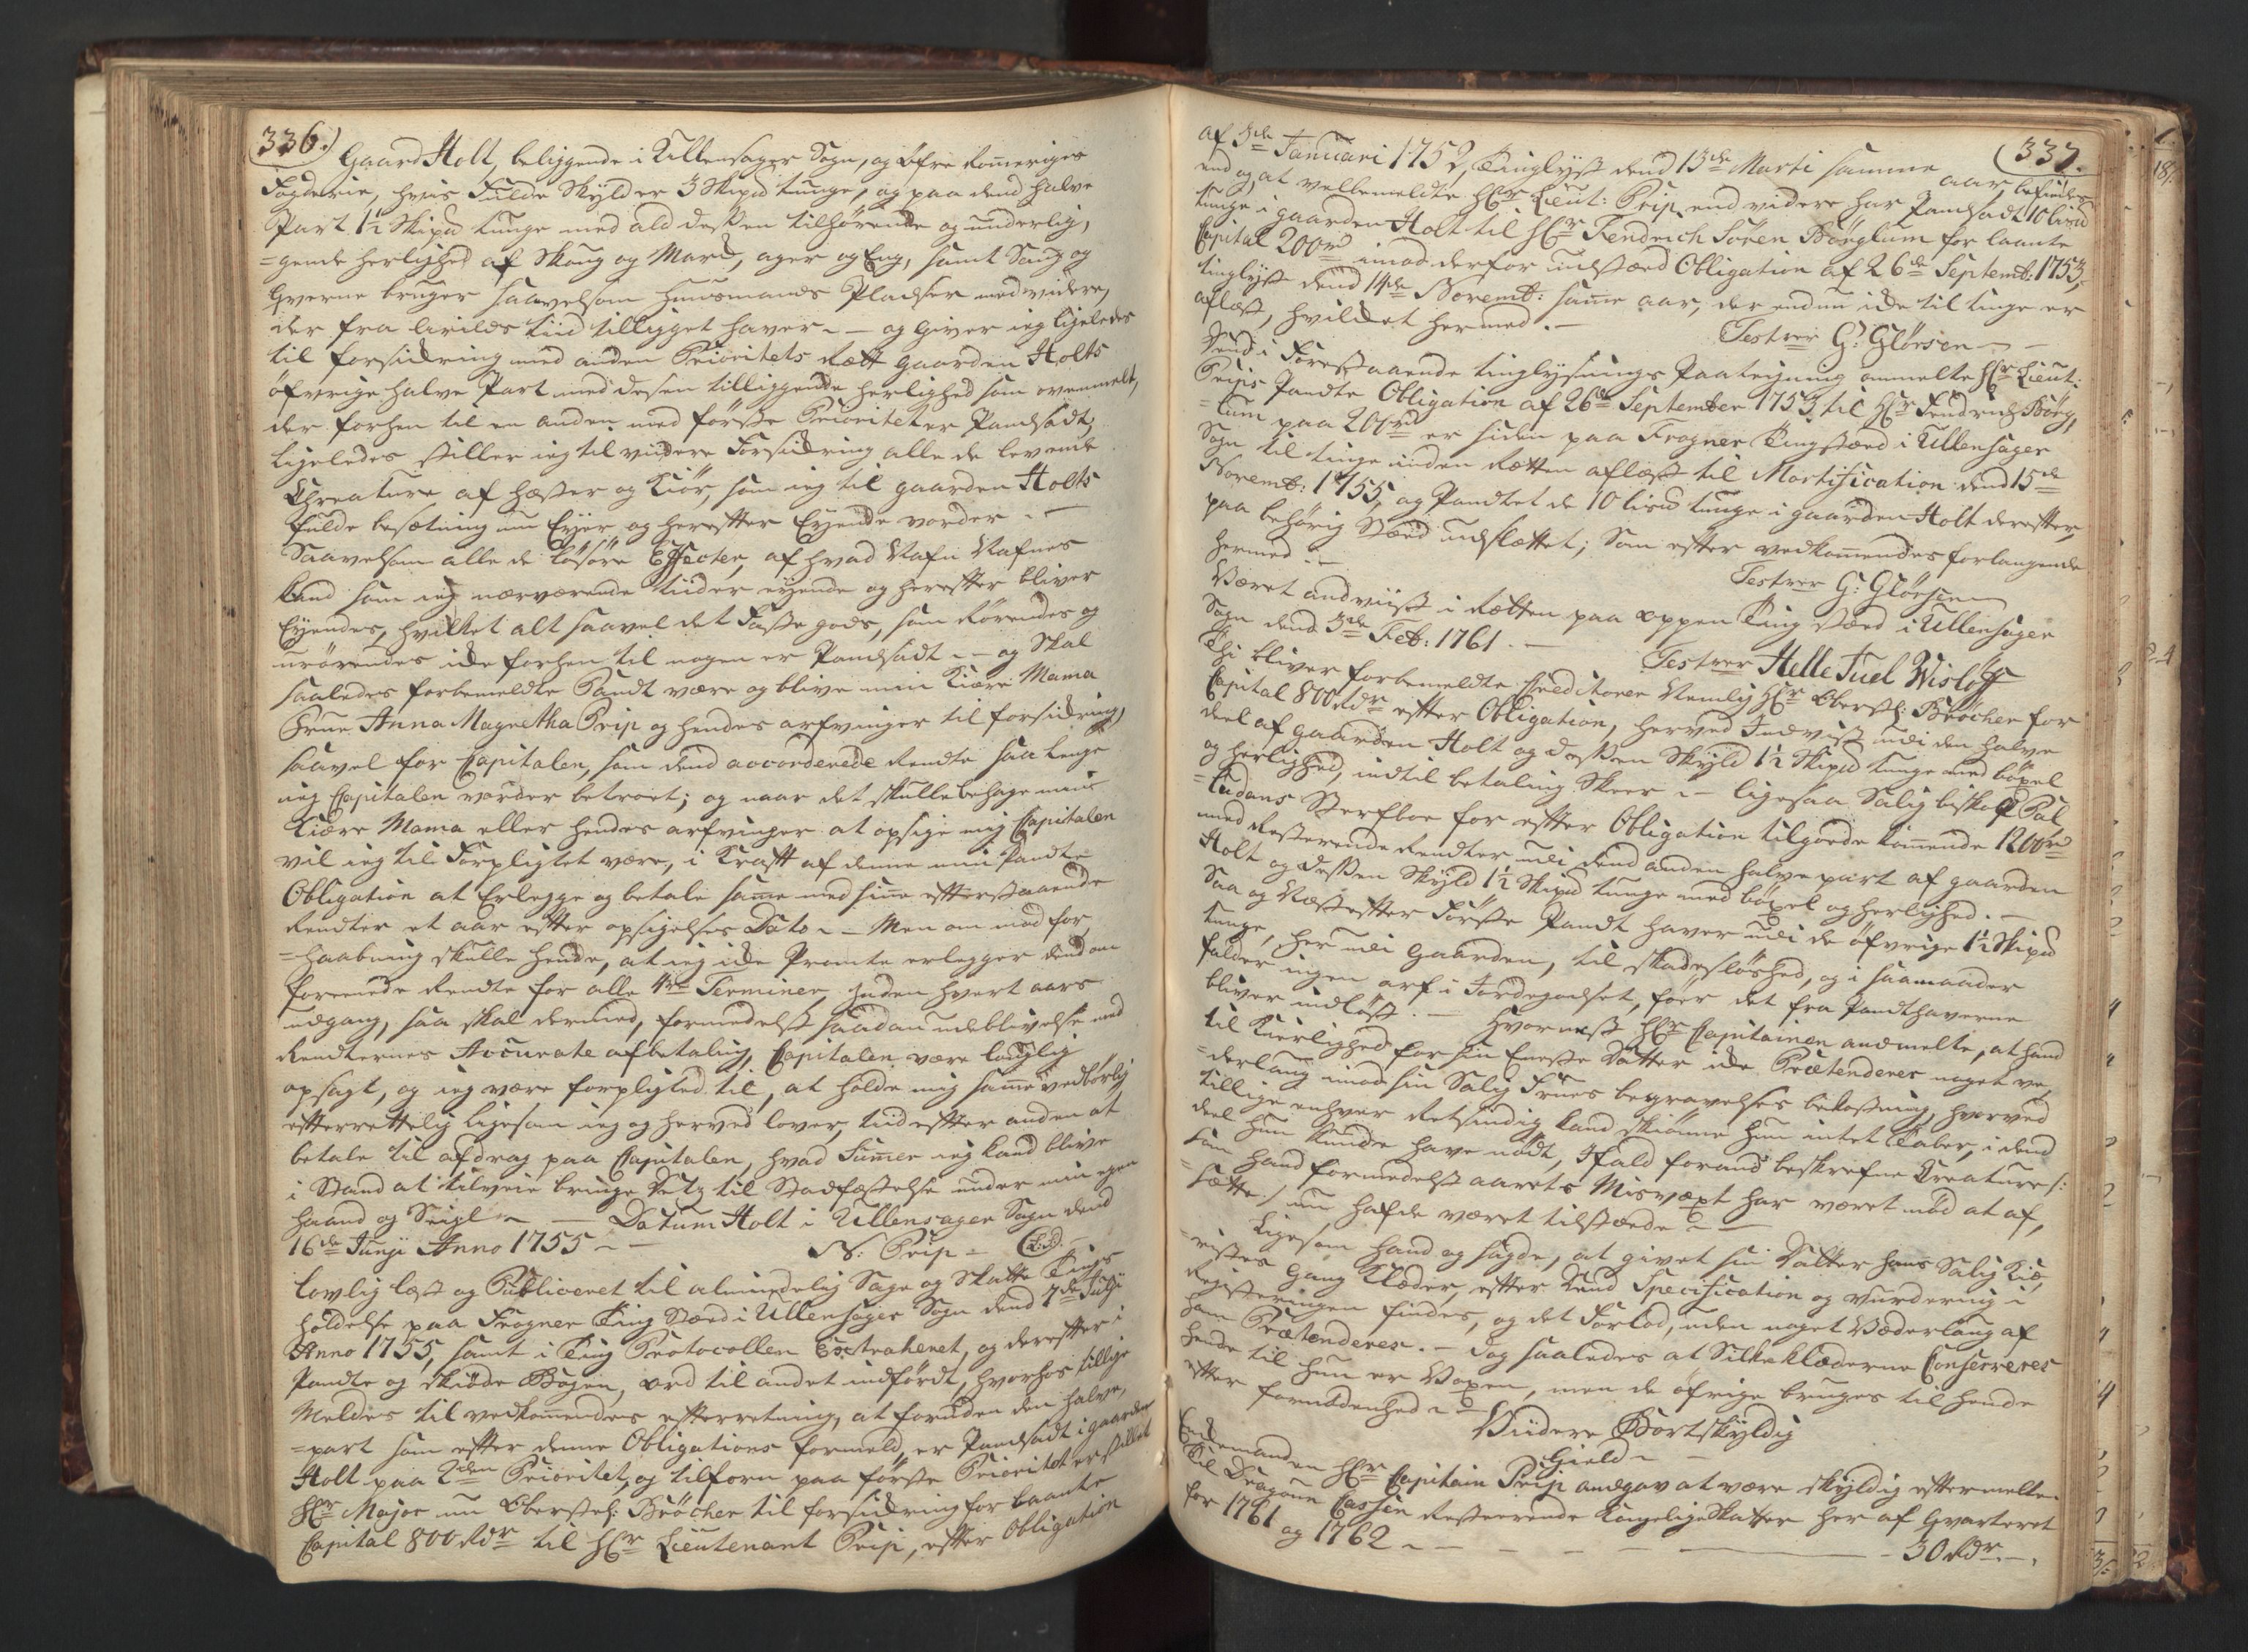 336.)
Gaard Holt, beliggende i Ullensager Sogn, og Øfre Romeriges
Fogderie, hvis Fulde Skyld er 3 Skipd tunge, og paa dend halve
Part 1½ Skipd tunge med ald dessen tilhørende og underlig,
=gende herlighed af Skoug og Mark, ager og Eng, samt Saug og
Qverne bruger saavelsom Huusmands Pladser med videre,
der fra Arilds tiid tilligget haver – og Giver ieg ligeledes
til forsickring med anden Prioritets Rætt gaarden Holts
öfvrige halve Part med desen tilliggende herlighed som ovenmelt,
der forhen til en anden med förste Prioritet er Pandsadt,
ligeledes stiller ieg til viidere Forsickring alle de levende
Chreature af Hæster og Kiør, som ieg til gaarden Holts
fulde besætning nu Ejer og herefter Ejende vorder –
Saavelsom alle de løsöre Effecter, af hvad Nafn Nafnes
kand som ieg nærværende tiider ejende og herefter bliver
Ejendes, hvilket alt saavel det Faste gods, som Rörendes og
urörendes icke forhen til nogen er Pandsadt – og Skal
saaledes forbemeldte Pandt være og blive min Kiære Mama
Frue Anna Magretha Prip og hendes arfvinger til forsickring,
saavel for Capitalen, som dend accorderede Rendte saa lenge
mig Capitalen vorder betroet; og naar det skulle behage min
Kiære Mama eller hendes arfvinger at opsige mig Capitalen
vil ieg til Forpligtet være, i Kraft af denne min Pandte
Obligation at Erlegge og betale samme med sine efterstaaende
Rendter et aar efter opsigelses Dato – Men om mod for,
=haabning skulle hende, at ieg icke Promte erlegger dend om
foreenede Rendte for alle 4re Terminer inden hvert aars
udgang, saa skal dermed, formedelst saadan udeblivelse med
Rendternes Accurate afbetaling, Capitalen være lovlig
opsagt, og ieg være forpligted til, at holde mig samme vedbørlig
efterrettelig ligesom ieg og herved lover, tiid efter anden at
betale til afdrag paa Capitalen, hvad Summer ieg kand blive
i Stand at tilveie bringe Dets til Stadfæstelse under min egen
haand og Seigl – Datum Holt i Ullensager Sogn dend
16de Junji Anno 1755 – N: Prip – (L.S.)
Lovlig læst og Publiceret til almindelig Sage og Skatte Tings
holdelse paa Frogner Ting Stæd i Ullensager Sogn dend 7de Julji
Anno 1755, samt i Ting Protocollen Extraheret, og derefter i
Pandte og skiöde Bogen, ord til andet indfördt, hvorhos tillige
Meldes til vedkommendes efterretning, at foruden den halve,
=part som efter denne Obligations formeld, er Pandsadt i gaarden
Holt paa 2den Prioritet, og tilforn paa förste Prioritet er stillet
Hr Major nu Oberstl: Bröcher til forsickring for laante
Capital 800 Rdr til Hr Lieutenant Prip, efter Obligation
337.
af 3de Januari 1752, Tinglyst dend 13de Marti samme aar, befindes
end og, at velbemeldte Hr Lieut: Prip end videre har Pandsadt 10 lispd
tunge i gaarden Holt til Hr Fendrich Sören Börglum for laante
Capital 200rd imod derfor udstæd Obligation af 26de Septemb: 1753,
tinglyst dend 14de Novemb: samme aar, der endnu icke til tinge er
aflæst, hvilcket hermed. –
Testerer G: Glörsen –
Dend i Forestaaende tinglysnings Paategning anmelte Hr Lieut:
Prips Pandte Obligation af 26de September 1753 til Hr Fendrich Börg,
=lum paa 200rd er siden paa Frogner Tingstæd i Ullensager
Sogn til tinge inden Rætten aflæst til Mortification dend 15de
Novemb: 1755, og Pandtet de 10 lispd tunge i gaarden Holt derefter,
paa behörig Stæd udslættet; Som efter vedkommendes forlangende
hermed –
Testerer G: Glörsen
Været andviist i Rætten paa oppen Ting stæd i Ullensager
Sogn dend 3de Feb: 1761. –
Testerer Helle Juel Wisloff
Thi bliver forbemeldte Creditorer Nemlig Hr Oberstl: Bröcher for
Capital 800 Rdr efter Obligation, herved Indvist udi den halve
deel af gaarden Holt og dessen Skyld 1½ Skipd tunge med böxel
og herlighed, indtil betaling Skeer – ligesaa Salig biskop Pal
=ludans Sterfboe for efter Obligation tilgoede kommende 1200rd
med Resterende Rendter, udi dend anden halve part af gaarden
Holt og dessen Skyld 1½ Skipd tunge med böxel og herlighed. –
Saa og Næst efter Förste Pandt haver udi de öfvrige 1½ Skipd
tunge, her udi Gaarden, til skadeslöshed, og i saamaader
falder ingen arf i Jordegodset, föer det fra Pandthaverne
bliver indlöst. – Hvornæst Hr Capitainen anmelte, at hand
til Kierlighed for sin Eneste Datter icke Prætenderer noget ve,
=derlaug imod sin Salig Frues begravelses bekostning, hvorved
tillige enhver Retsindig kand skiönne hun intet Taber, i dend
deel hun kunde have nödt, Ifald forand beskrefne Creature /:
som hand formedelst aarets Misvæxt har været nöd at af,
=sætte:/ nu hafde været tilstæde –
Ligesom hand og sagde, at givet sin Datter hans Salig Kiæ,
=ristes Gang Klæder, efter dend Specification og vurdering i
Registeringen findes, og det Forlod, uden noget Vederlaug af
ham Prætenderer. – dog saaledes at Silkeklæderne Conserveres
hende til hun er Voxen, men de öfrige bruges til hende
efter fornödenhed –
Viidere Bortskyldig
Gield –
Enkemanden Hr Capitain Prip andgav at være skyldig eftermelte.
Til Dragoun Cassen Resterende kongelige Skatter her af Qvarteret
for 1761 og 1762 – – – – – 30 Rdr –.